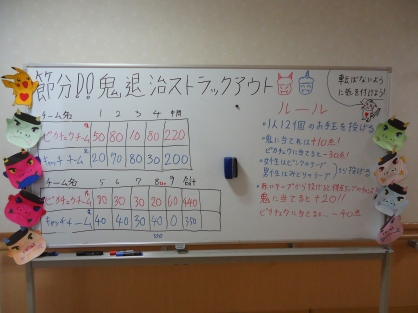 節分!!鬼退治ストラックアウト
転ばないよう
に気を付けよう!
チーム名 1 2 3 4 中間
ピカチュウチーム 50 80 10 80 220
キャッチチーム 20 70 80 30 200
チーム名 5 6 7 8 9 合計
ピカチュウチーム 80 30 30 20 60 440
キャッチチーム 40 40 30 40 0 350
ルール
•1人12個のお手玉を投げる
•鬼に当てれば+10点!
ピカチュウに当てると-30点!
•女性はピンクのテープ
男性はみどりのテープ から投げる
鬼に当てると+20!!
ピカチュウに当てると... -40点